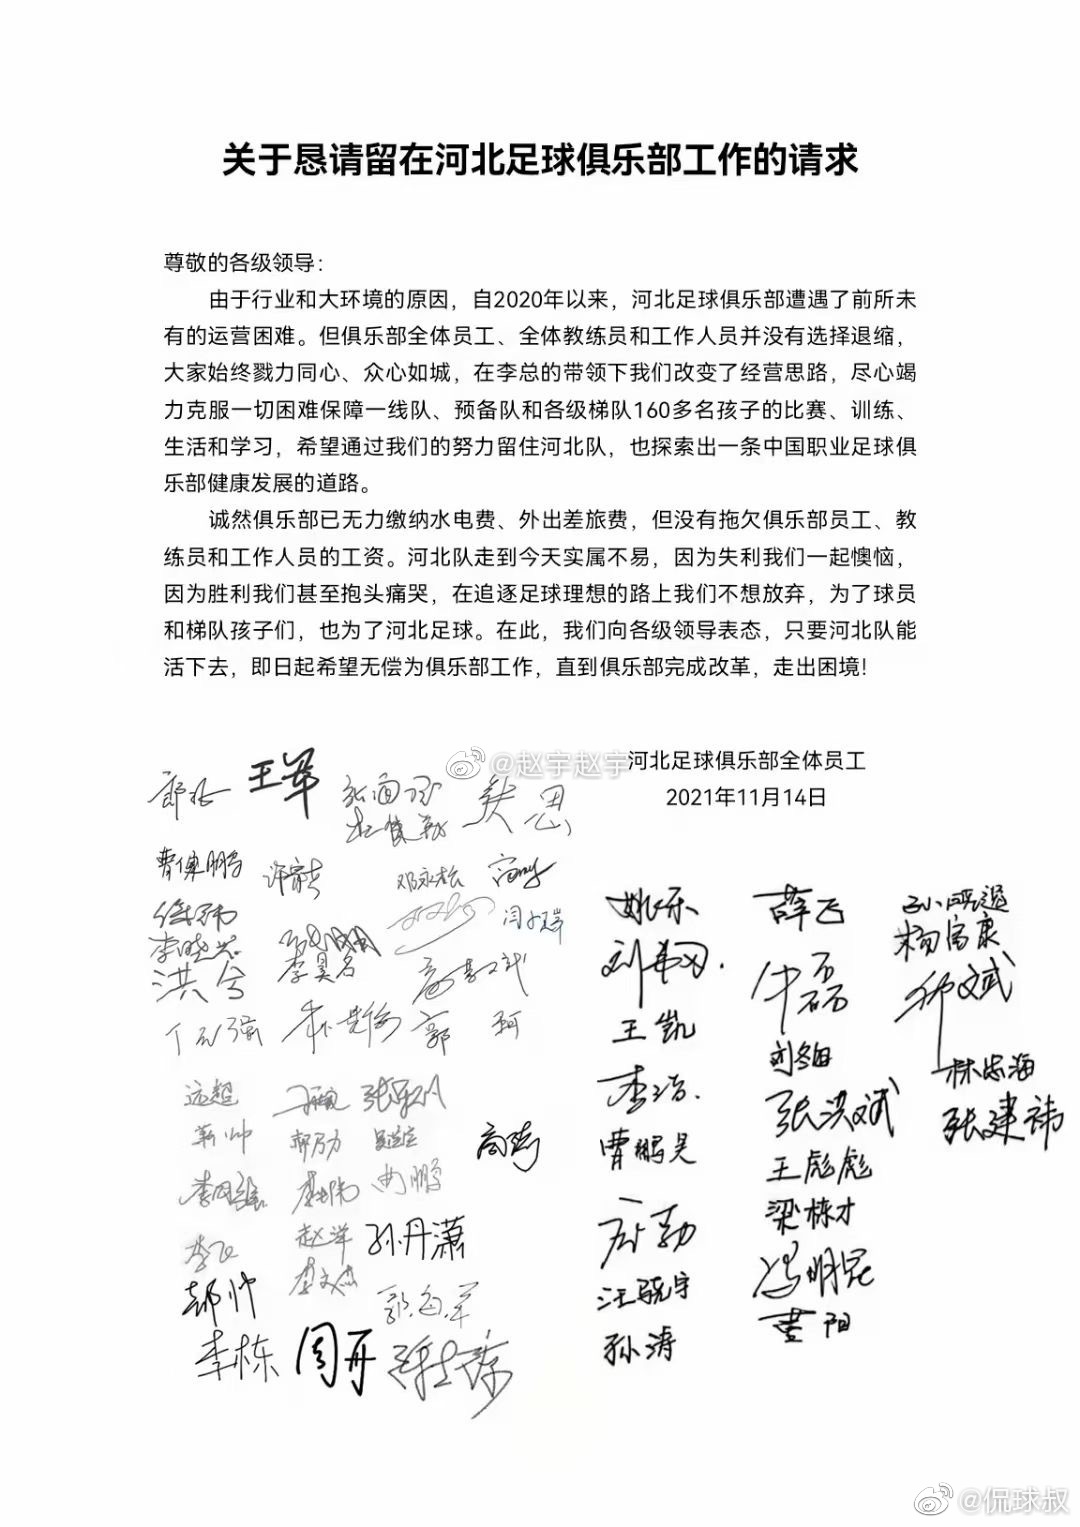 关于恳请留在河北足球俱乐部工作的请求
尊敬的各级领导：
由于行业和大环境的原因，自2020年以来，河北足球俱乐部遭遇了前所未
有的运营困难。但俱乐部全体员工、全体教练员和工作人员并没有选择退缩，
大家始终戮力同心、众心如城，在李总的带领下我们改变了经营思路，尽心竭
力克服一切困难保障一线队、预备队和各级梯队160多名孩子的比赛、训练、
生活和学习，希望通过我们的努力留住河北队，也探索出一条中国职业足球俱
乐部健康发展的道路。
诚然俱乐部已无力缴纳水电费、外出差旅费，但没有拖欠俱乐部员工、教
练员和工作人员的工资。河北队走到今天实属不易，因为失利我们一起懊恼，
因为胜利我们甚至抱头痛哭，在追逐足球理想的路上我们不想放弃，为了球员
和梯队孩子们，也为了河北足球。在此，我们向各级领导表态，只要河北队能
活下去，即日起希望无偿为俱乐部工作，直到俱乐部完成改革，走出困境！
@赵宇赵宇
河北足球俱乐部全体员工
2021年11月14日
王军
曹保鹏
邓永松
徐玮
李晓芸
李昊名
洪兮
郭 珂
远超
靳帅
曲鹏
李飞
赵洋
孙丹潇
李文杰
郝帅
李栋
周开
姚乐
薛飞
杨富康
牛磊
王凯
林忠海
张洪斌
张建祎
曹鹏昊
王彪彪
梁栋才
汪骁宇
冯明冠
孙涛
董阳
@侃球叔